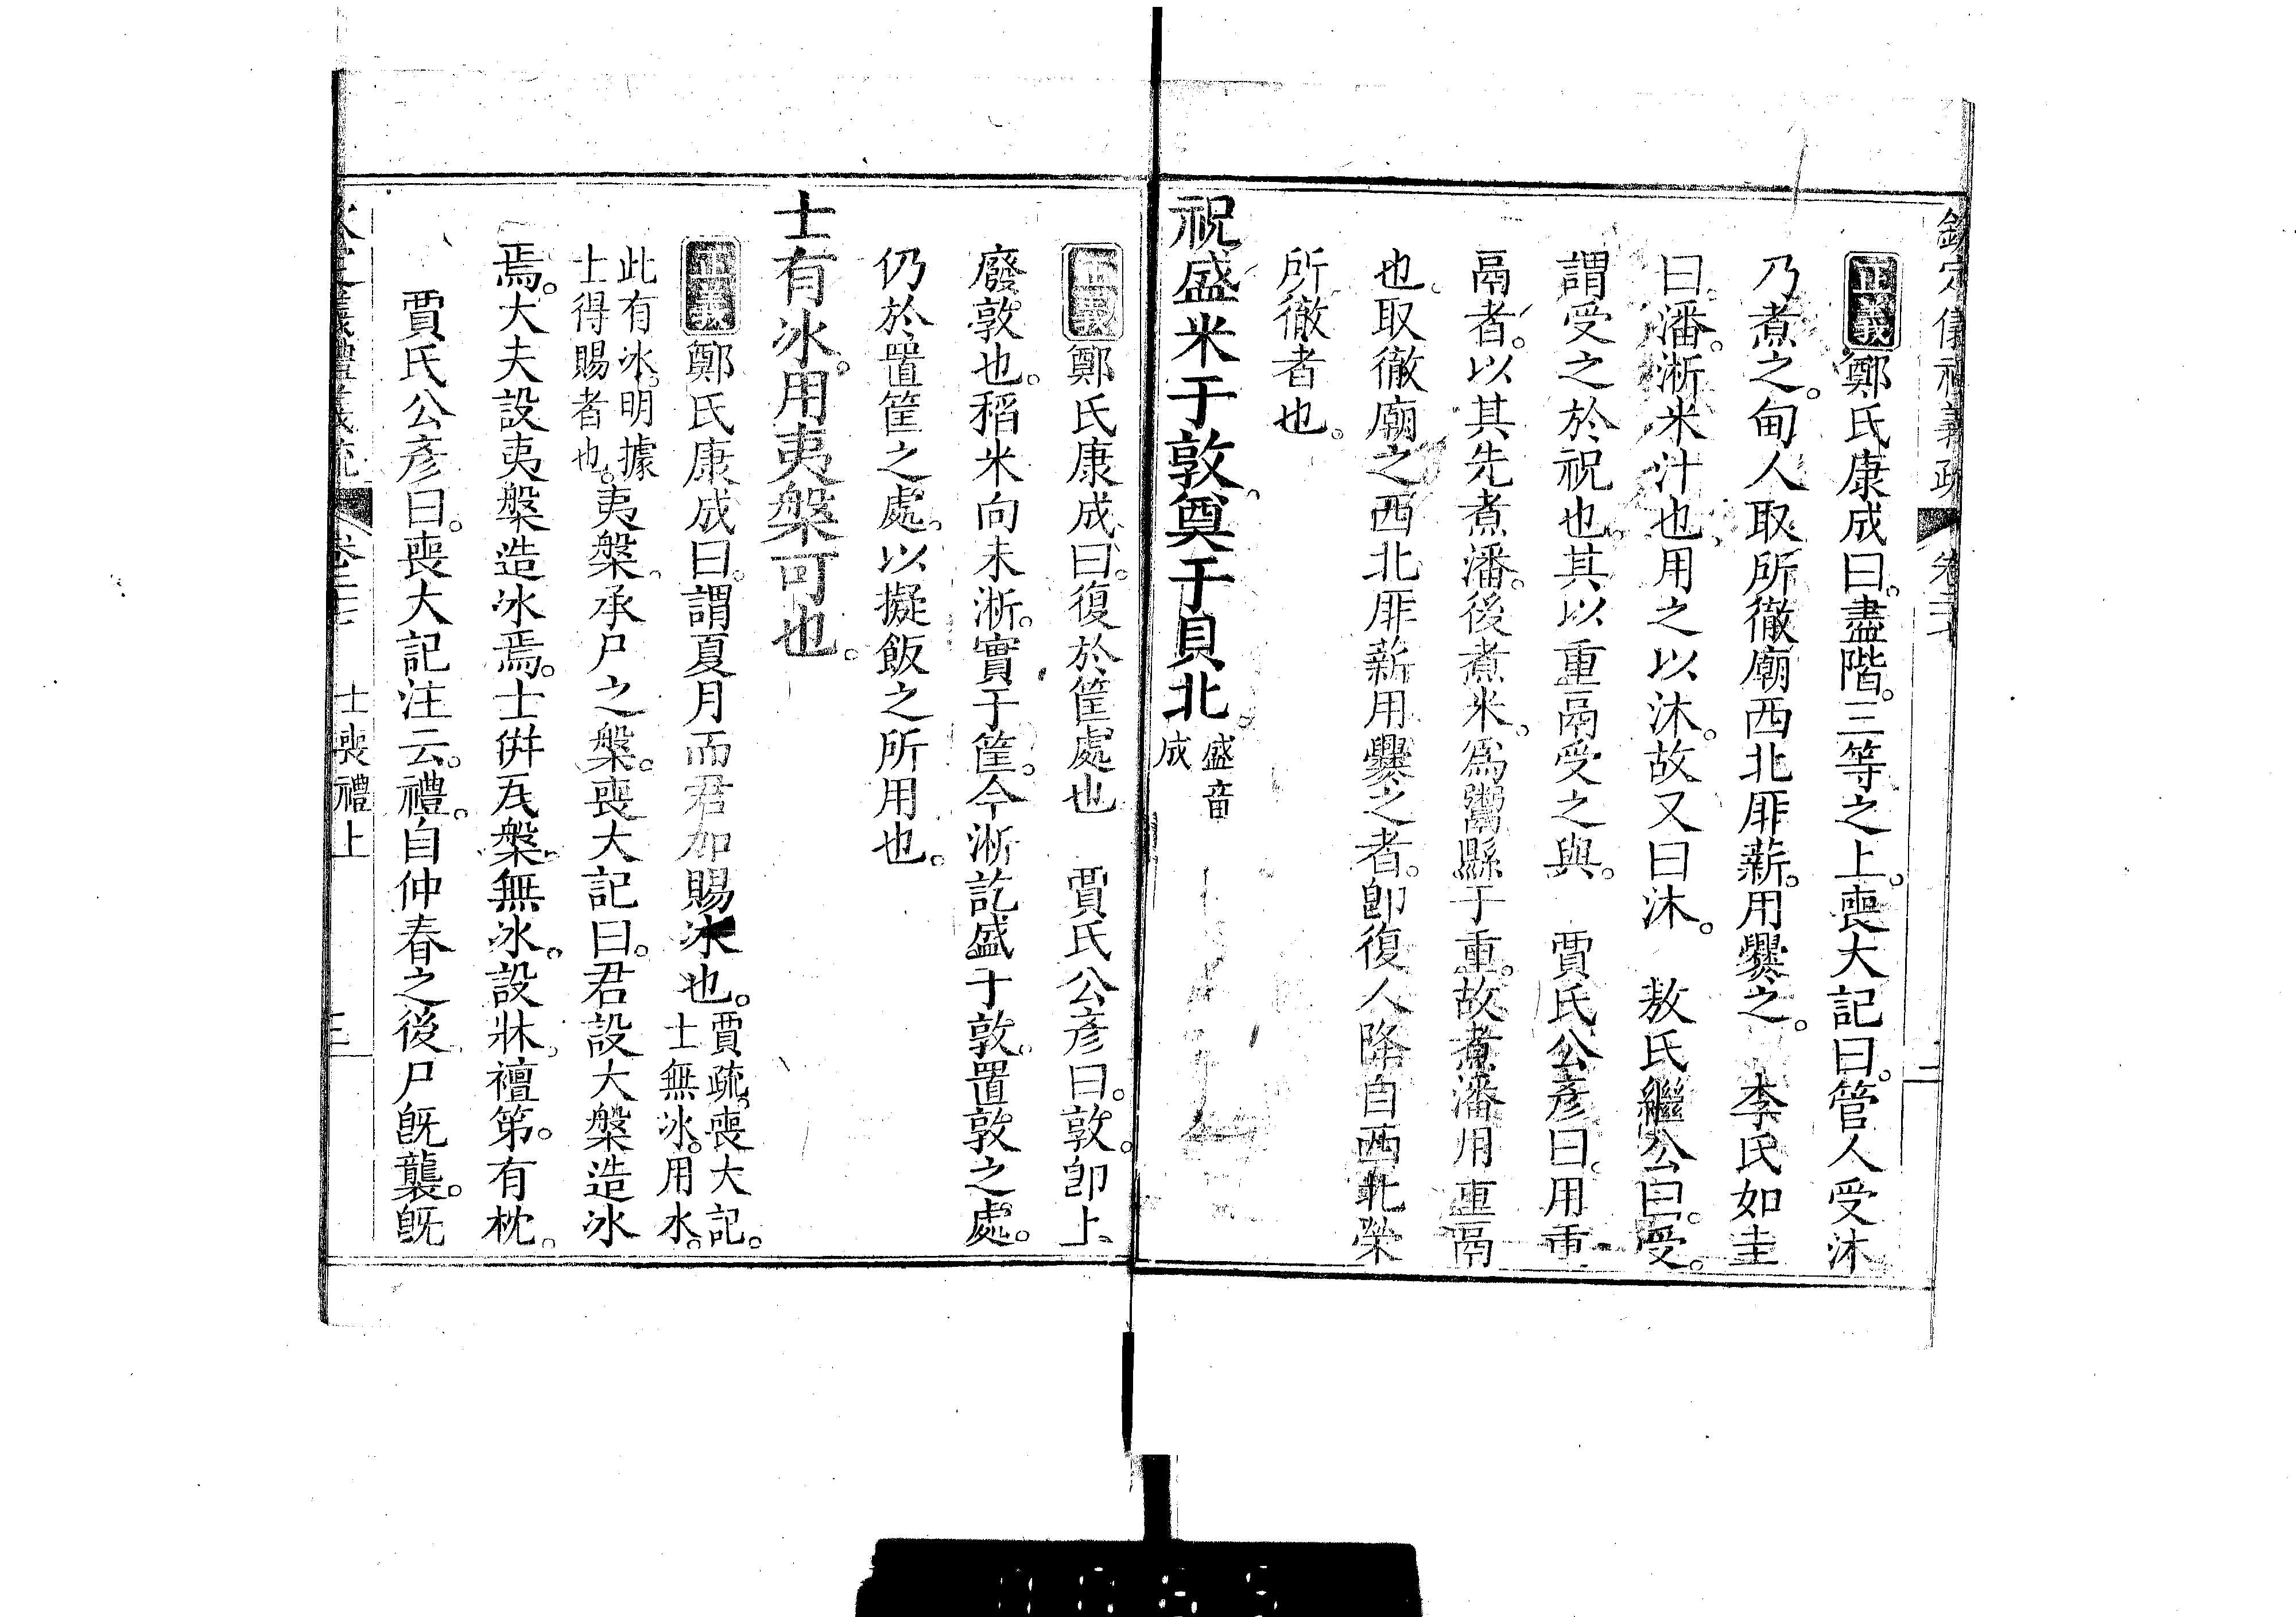 欽定儀禮義疏 卷二十七 二
正義鄭氏康成曰。盡階。三等之上。喪大記曰。管人受沐
乃煮之。甸人取所徹廟西北厞薪。用爨之。 李氏如圭
曰。潘。淅米汁也。用之以沐。故又曰沐。 敖氏繼公曰。受。
謂受之於祝也。其以重鬲受之與。 賈氏公彥曰。用重
鬲者。以其先煮潘。後煮米。爲鬻縣于重。故煮潘用重鬲
也。取徹廟之西北厞薪用爨之者。卽復人降自西北榮
所徹者也。
祝盛米于敦。奠于貝北。盛音
成
正義鄭氏康成曰。復於筐處也 賈氏公彥曰。敦。卽上
廢敦也。稻米向未淅。實于筐。今淅訖盛于敦。置敦之處。
仍於置筐之處。以擬飯之所用也。
士有冰。用夷槃可也。
正義鄭氏康成曰。謂夏月而君加賜冰也。賈疏。喪大記。
士無冰。用水。
此有冰。明據
士得賜者也。夷槃。承尸之槃。喪大記曰。君設大槃造冰
焉。大夫設夷槃造冰焉。士倂瓦槃。無冰。設牀。襢第。有枕。
賈氏公彥曰。喪大記注云。禮。自仲春之後尸旣襲。旣
儀禮義疏 卷二十七 士喪禮上 三